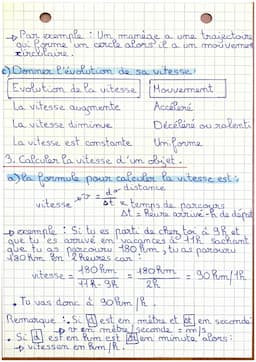 → Par exemple : Un manège a une trajectoire
qui forme un cercle alors il a un mouvement
circulaire.
c) Donner l'évolution de sa vitesse :
Evolution de la vitesse | Mouvement
La vitesse augmente Accéléré
La vitesse diminue Décéléré ou ralenti
La vitesse est constante Uniforme
3. Calculer la vitesse d'un objet.
a) la formule pour calculer la vitesse est :
vitesse ← v = d → distance
Δt → temps de parcours
Δt = heure arrivée - h de départ
→ exemple : Si tu es parti de chez toi à 9h et
que tu es arrivé en vacances à 11h sachant
que tu as parcouru 180 km, tu as parcouru
180 km en 2 heures car :
vitesse = 180 km / 11h - 9h = 180 km / 2h = 90 km/1h
• Tu vas donc à 90 km/h.
Remarque : • Si d est en mètre et Δt en seconde
→ v en mètre/seconde = m/s
• Si d est en km est Δt en minute alors :
→ vitesse en km/h.